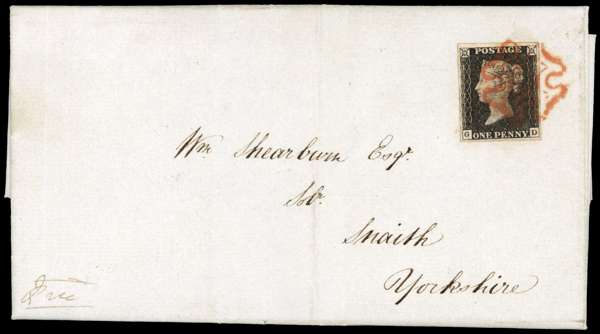 POSTAGE
G ONE PENNY D
Wm Shearburn Esqr.
Solr.
Snaith
Yorkshire